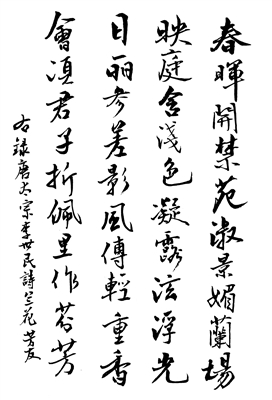 春暉開禁苑淑景媚蘭場
映庭含淺色凝露泫浮光
日丽参差影風傳輕重香
會須君子折佩里作芬芳
右録唐太宗李世民詩兰花芳友